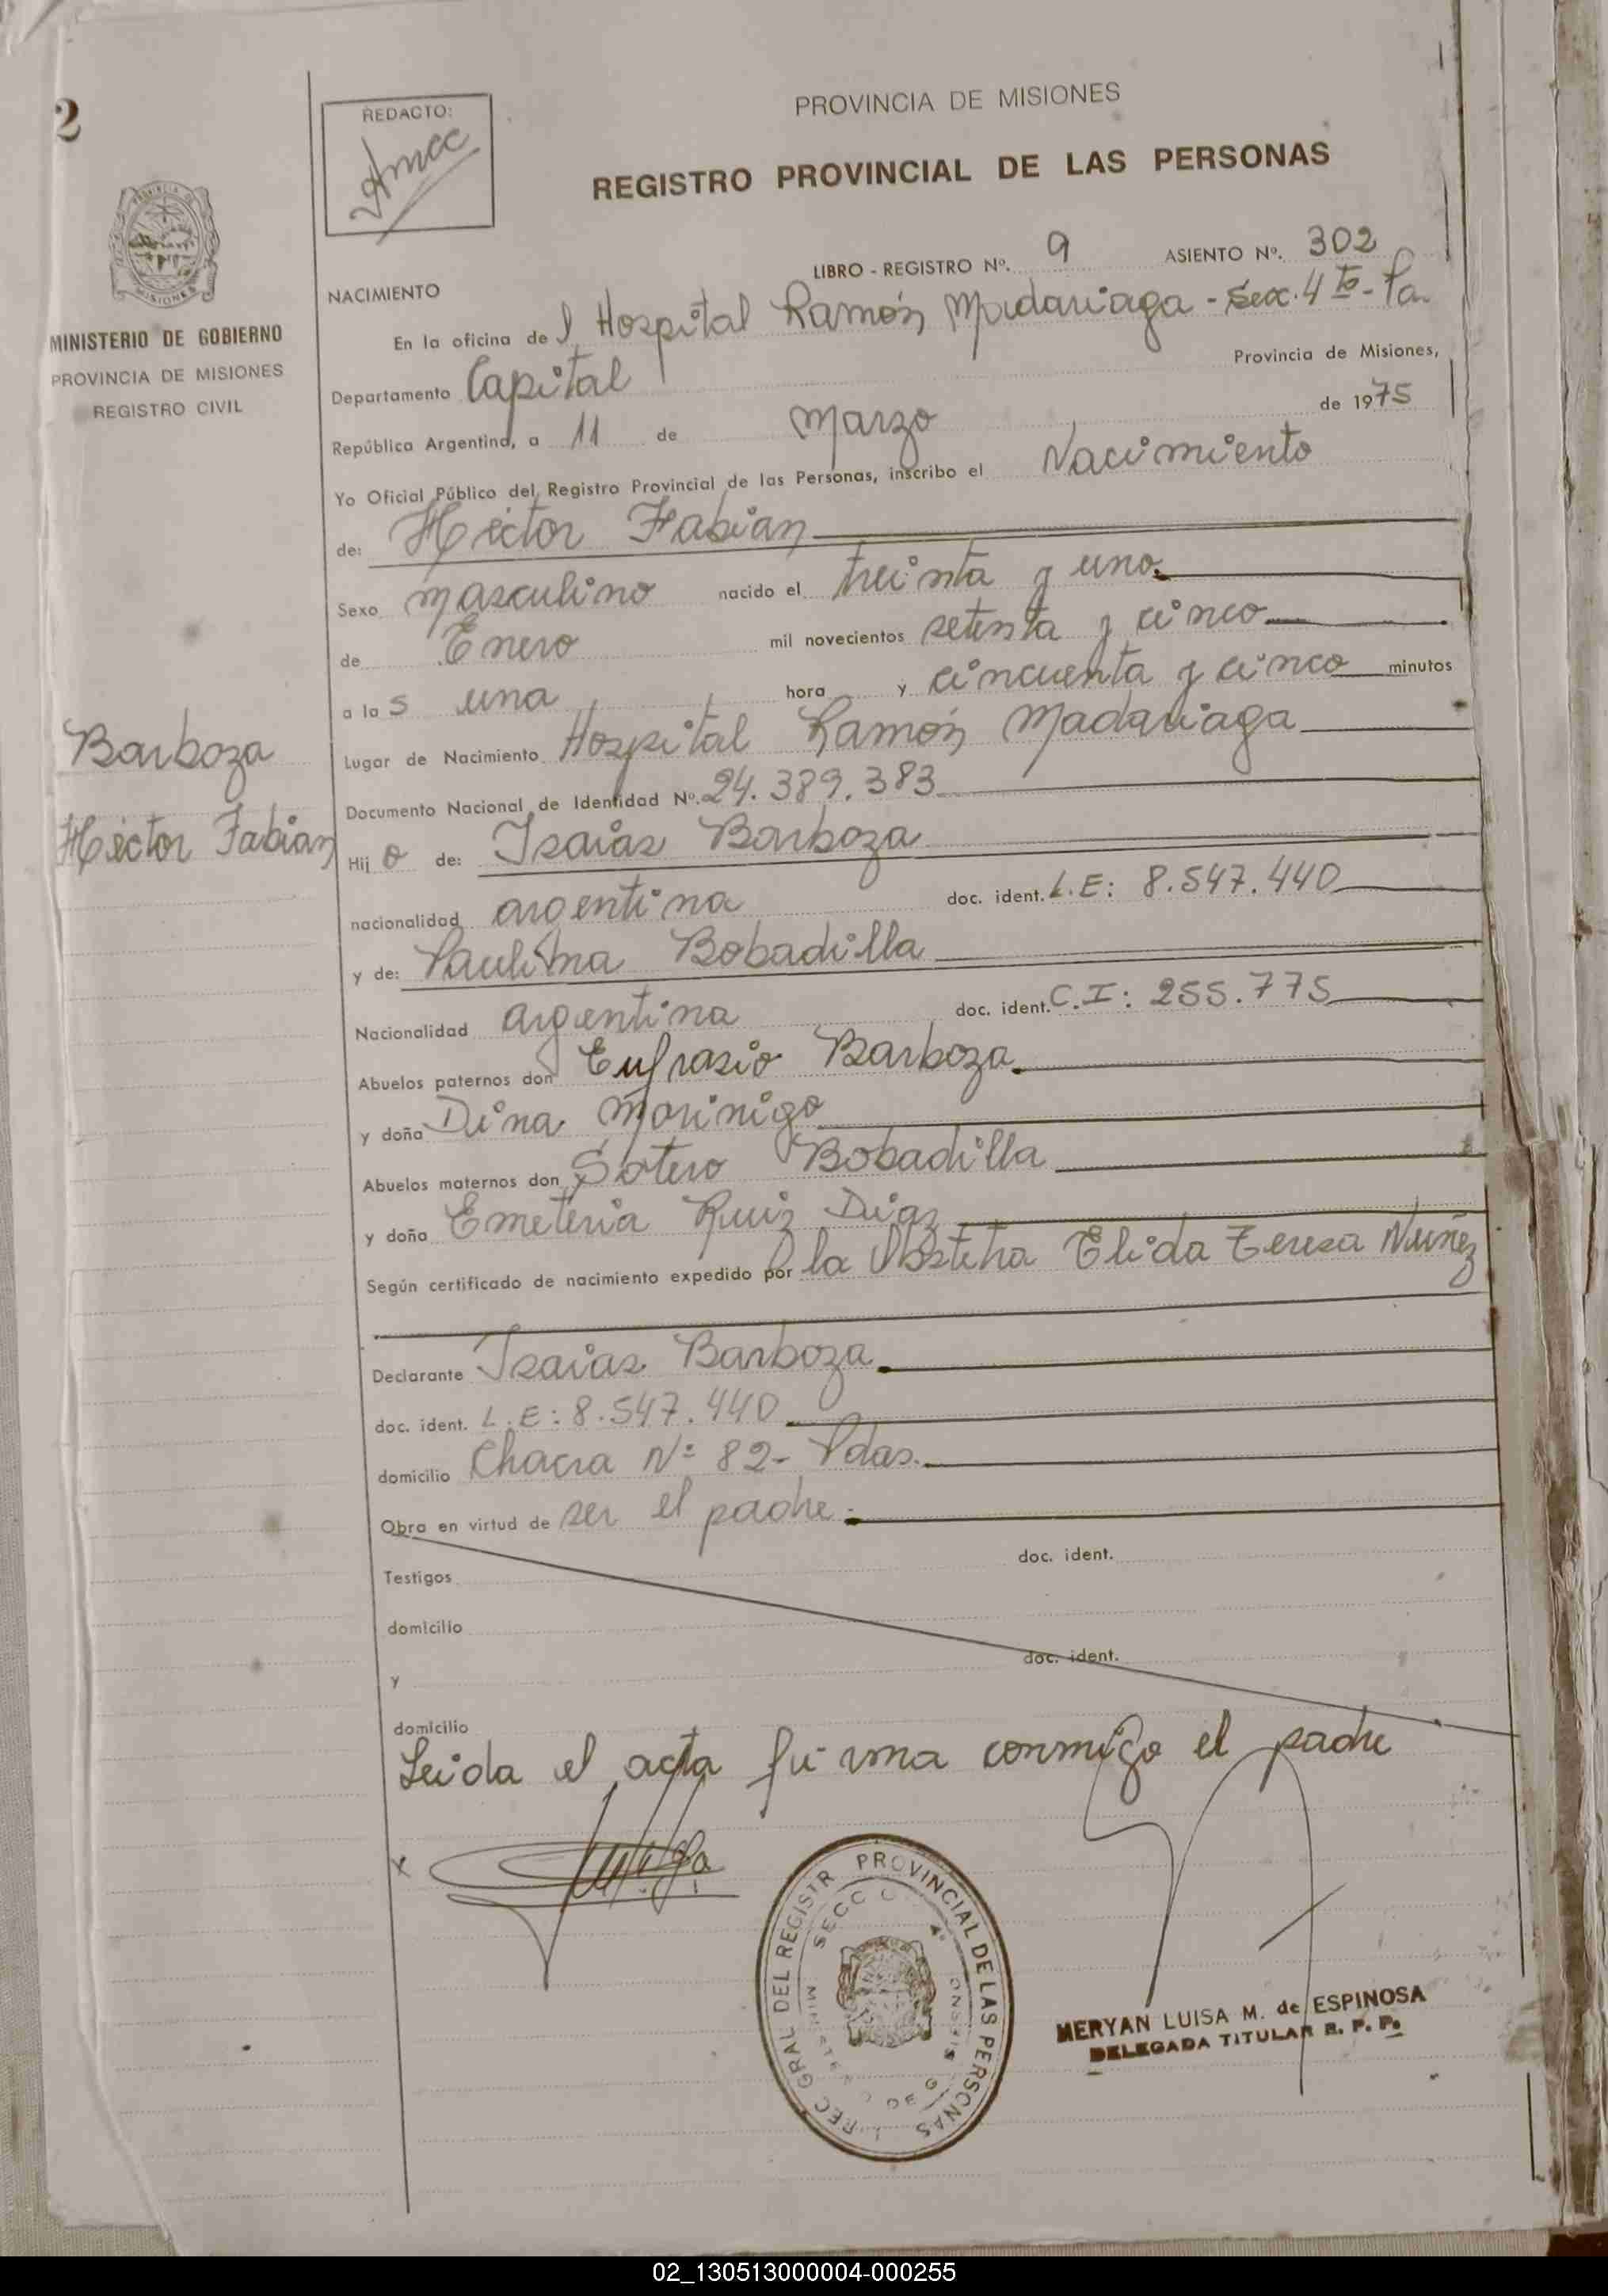 2
REDACTO:
PROVINCIA DE MISIONES
REGISTRO PROVINCIAL DE LAS PERSONAS
LIBRO - REGISTRO Nº. 9 ASIENTO Nº. 302
MISIONES
MINISTERIO DE GOBIERNO
PROVINCIA DE MISIONES
REGISTRO CIVIL
NACIMIENTO
En la oficina del Hospital Ramón Madariaga - Sec. 4ta-
Departamento Capital Provincia de Misiones,
República Argentina, a 11 de Marzo de 1975
Yo Oficial Público del Registro Provincial de las Personas, inscribo el Nacimiento
de: Héctor Fabian
Sexo masculino nacido el treinta y uno
de Enero mil novecientos setenta y cinco
a las una hora y cincuenta y cinco minutos
Barboza
Héctor Fabian
Lugar de Nacimiento Hospital Ramón Madariaga
Documento Nacional de Identidad Nº. 24.389.383
Hijo de: Isaias Barboza
nacionalidad argentina doc. ident. L.E: 8.547.440
y de: Paulina Bobadilla
Nacionalidad argentina doc. ident. C.I: 255.775
Abuelos paternos don Eufrasio Barboza
y doña Dina Morinigo
Abuelos maternos don Sotero Bobadilla
y doña Emeteria Ruiz Diaz
Según certificado de nacimiento expedido por la Obstetra Elida Teresa Nuñez
Declarante Isaias Barboza
doc. ident. L.E: 8.547.440
domicilio Chacra Nº 82- Pdas.
Obra en virtud de ser el padre.
Testigos doc. ident.
domicilio
y doc. ident.
domicilio
Leida el acta firma conmigo el padre
x
REC GRAL DEL REGISTR PROVINCIAL DE LAS PERSONAS
SECC 4º
MERYAN LUISA M. de ESPINOSA
DELEGADA TITULAR R. P. P.
02_130513000004-000255